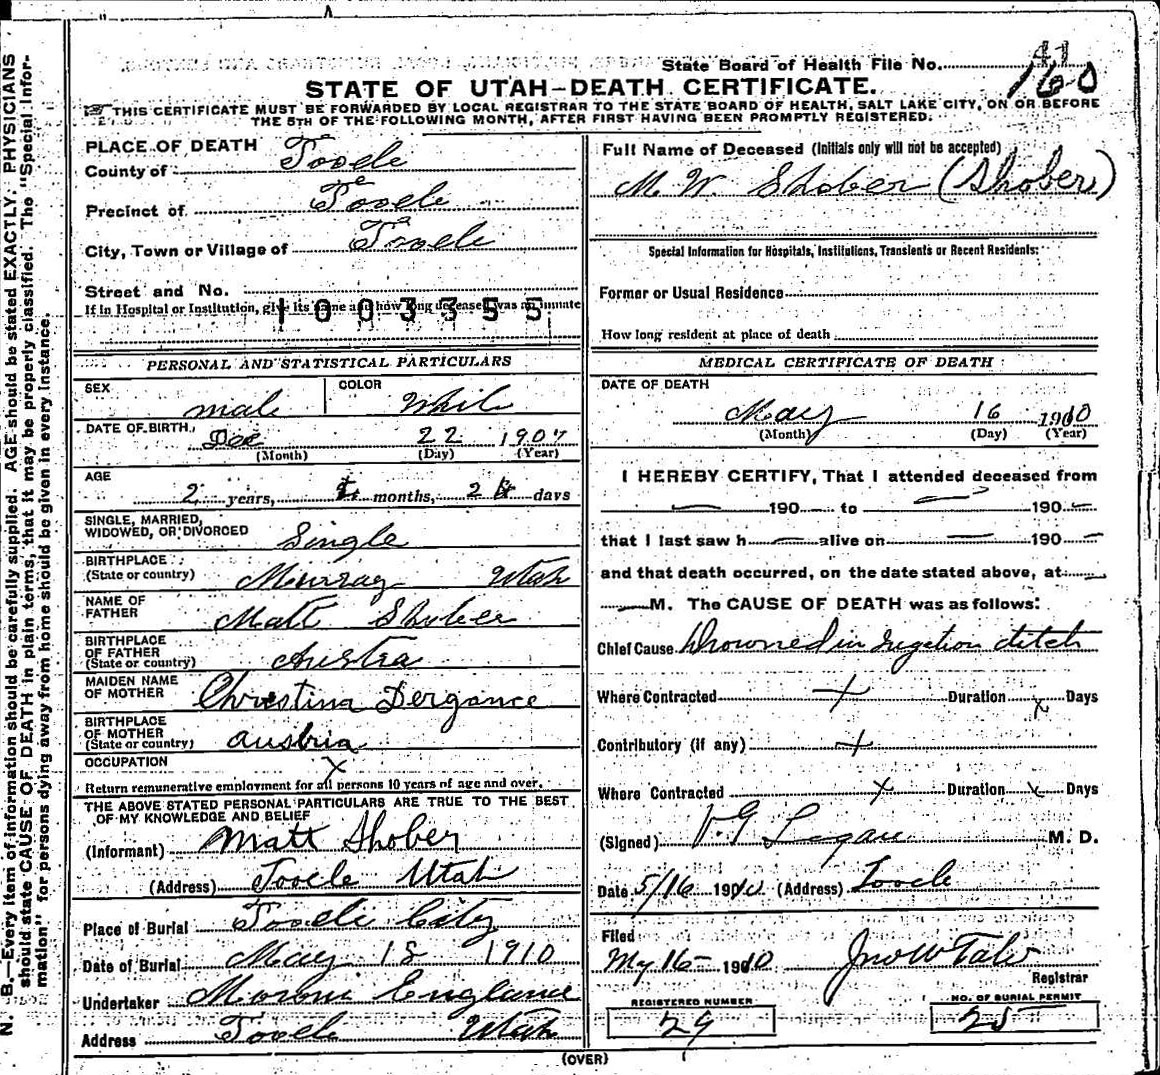 State Board of Health File No. 41
160
STATE OF UTAH—DEATH CERTIFICATE.
THIS CERTIFICATE MUST BE FORWARDED BY LOCAL REGISTRAR TO THE STATE BOARD OF HEALTH, SALT LAKE CITY, ON OR BEFORE
THE 5TH OF THE FOLLOWING MONTH, AFTER FIRST HAVING BEEN PROMPTLY REGISTERED.
N. B.—Every item of information should be carefully supplied. AGE should be stated EXACTLY. PHYSICIANS
should state CAUSE OF DEATH in plain terms, that it may be properly classified. The "Special Infor-
mation" for persons dying away from home should be given in every instance.
PLACE OF DEATH
County of Tooele
Precinct of Tooele
City, Town or Village of Tooele
Street and No.
If in Hospital or Institution, give its name and how long deceased was an inmate
1003355
PERSONAL AND STATISTICAL PARTICULARS
SEX male
COLOR White
DATE OF BIRTH, Dec 22 1907
(Month) (Day) (Year)
AGE
2 years, 4 months, 24 days
SINGLE, MARRIED,
WIDOWED, OR DIVORCED Single
BIRTHPLACE
(State or country) Murray Utah
NAME OF
FATHER Matt Shober
BIRTHPLACE
OF FATHER
(State or country) Austria
MAIDEN NAME
OF MOTHER Christina Dergance
BIRTHPLACE
OF MOTHER
(State or country) Austria
OCCUPATION X
Return remunerative employment for all persons 10 years of age and over.
THE ABOVE STATED PERSONAL PARTICULARS ARE TRUE TO THE BEST
OF MY KNOWLEDGE AND BELIEF
(Informant) Matt Shober
(Address) Tooele Utah
Place of Burial Tooele City
Date of Burial May 18 1910
Undertaker England
Address Tooele Utah
Full Name of Deceased (Initials only will not be accepted)
M. W. Shober (Shober)
Special Information for Hospitals, Institutions, Transients or Recent Residents:
Former or Usual Residence
How long resident at place of death
MEDICAL CERTIFICATE OF DEATH
DATE OF DEATH
May 16 1910
(Month) (Day) (Year)
I HEREBY CERTIFY, That I attended deceased from
— 190 — to — 190 —
that I last saw h — alive on — 190 —
and that death occurred, on the date stated above, at —
— M. The CAUSE OF DEATH was as follows:
Chief Cause Drowned in irrigation ditch
Where Contracted X Duration X Days
Contributory (if any) X
Where Contracted X Duration X Days
(Signed) M. D.
Date 5/16 1910 (Address) Tooele
Filed
My 16 1910
Registrar
REGISTERED NUMBER
29
NO. OF BURIAL PERMIT
25
(OVER)